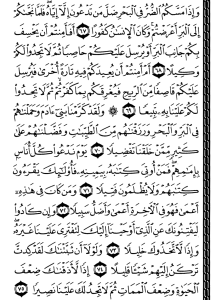 وَإِذَا مَسَّكُمُ الضُّرُّ فِي الْبَحْرِ ضَلَّ مَن تَدْعُونَ إِلَّا إِيَّاهُ فَلَمَّا نَجَّاكُمْ
إِلَى الْبَرِّ أَعْرَضْتُمْ وَكَانَ الْإِنسَانُ كَفُورًا ٦٧ أَفَأَمِنتُمْ أَن يَخْسِفَ
بِكُمْ جَانِبَ الْبَرِّ أَوْ يُرْسِلَ عَلَيْكُمْ حَاصِبًا ثُمَّ لَا تَجِدُوا لَكُمْ
وَكِيلًا ٦٨ أَمْ أَمِنتُمْ أَن يُعِيدَكُمْ فِيهِ تَارَةً أُخْرَىٰ فَيُرْسِلَ
عَلَيْكُمْ قَاصِفًا مِّنَ الرِّيحِ فَيُغْرِقَكُم بِمَا كَفَرْتُمْ ثُمَّ لَا تَجِدُوا
لَكُمْ عَلَيْنَا بِهِ تَبِيعًا ٦٩ وَلَقَدْ كَرَّمْنَا بَنِي آدَمَ وَحَمَلْنَاهُمْ
فِي الْبَرِّ وَالْبَحْرِ وَرَزَقْنَاهُم مِّنَ الطَّيِّبَاتِ وَفَضَّلْنَاهُمْ عَلَىٰ
كَثِيرٍ مِّمَّنْ خَلَقْنَا تَفْضِيلًا ٧٠ يَوْمَ نَدْعُو كُلَّ أُنَاسٍ
بِإِمَامِهِمْ فَمَنْ أُوتِيَ كِتَابَهُ بِيَمِينِهِ فَأُولَٰئِكَ يَقْرَءُونَ
كِتَابَهُمْ وَلَا يُظْلَمُونَ فَتِيلًا ٧١ وَمَن كَانَ فِي هَٰذِهِ
أَعْمَىٰ فَهُوَ فِي الْآخِرَةِ أَعْمَىٰ وَأَضَلُّ سَبِيلًا ٧٢ وَإِن كَادُوا
لَيَفْتِنُونَكَ عَنِ الَّذِي أَوْحَيْنَا إِلَيْكَ لِتَفْتَرِيَ عَلَيْنَا غَيْرَهُ
وَإِذًا لَّاتَّخَذُوكَ خَلِيلًا ٧٣ وَلَوْلَا أَن ثَبَّتْنَاكَ لَقَدْ كِدتَّ
تَرْكَنُ إِلَيْهِمْ شَيْئًا قَلِيلًا ٧٤ إِذًا لَّأَذَقْنَاكَ ضِعْفَ
الْحَيَاةِ وَضِعْفَ الْمَمَاتِ ثُمَّ لَا تَجِدُ لَكَ عَلَيْنَا نَصِيرًا ٧٥